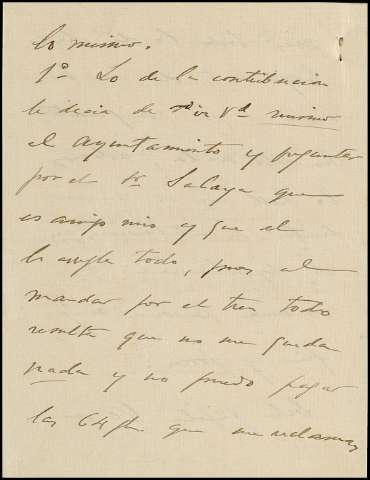 lo mismo.
1º Lo de la contribucion
le decia de ir Vd mismo
al ayuntamiento y preguntar
por el Sr. Salaya que
es amigo mio y que el
lo arregle todo, pues al
mandar por el tren todo
resulta que no me queda
nada y no puedo pagar
las 64 pts que me reclaman